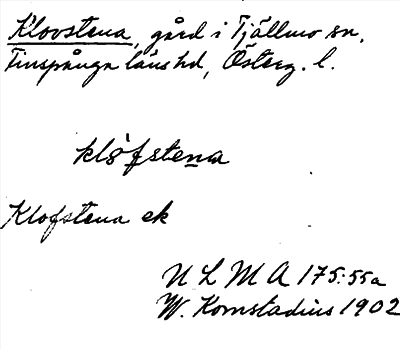 Klovstena, gård i Tjällmo sn,
Finspånga läns hd, Österg. l.
klo᷃fstena
Klofstena ek
ULMA 175:55a
W. Komstadius 1902